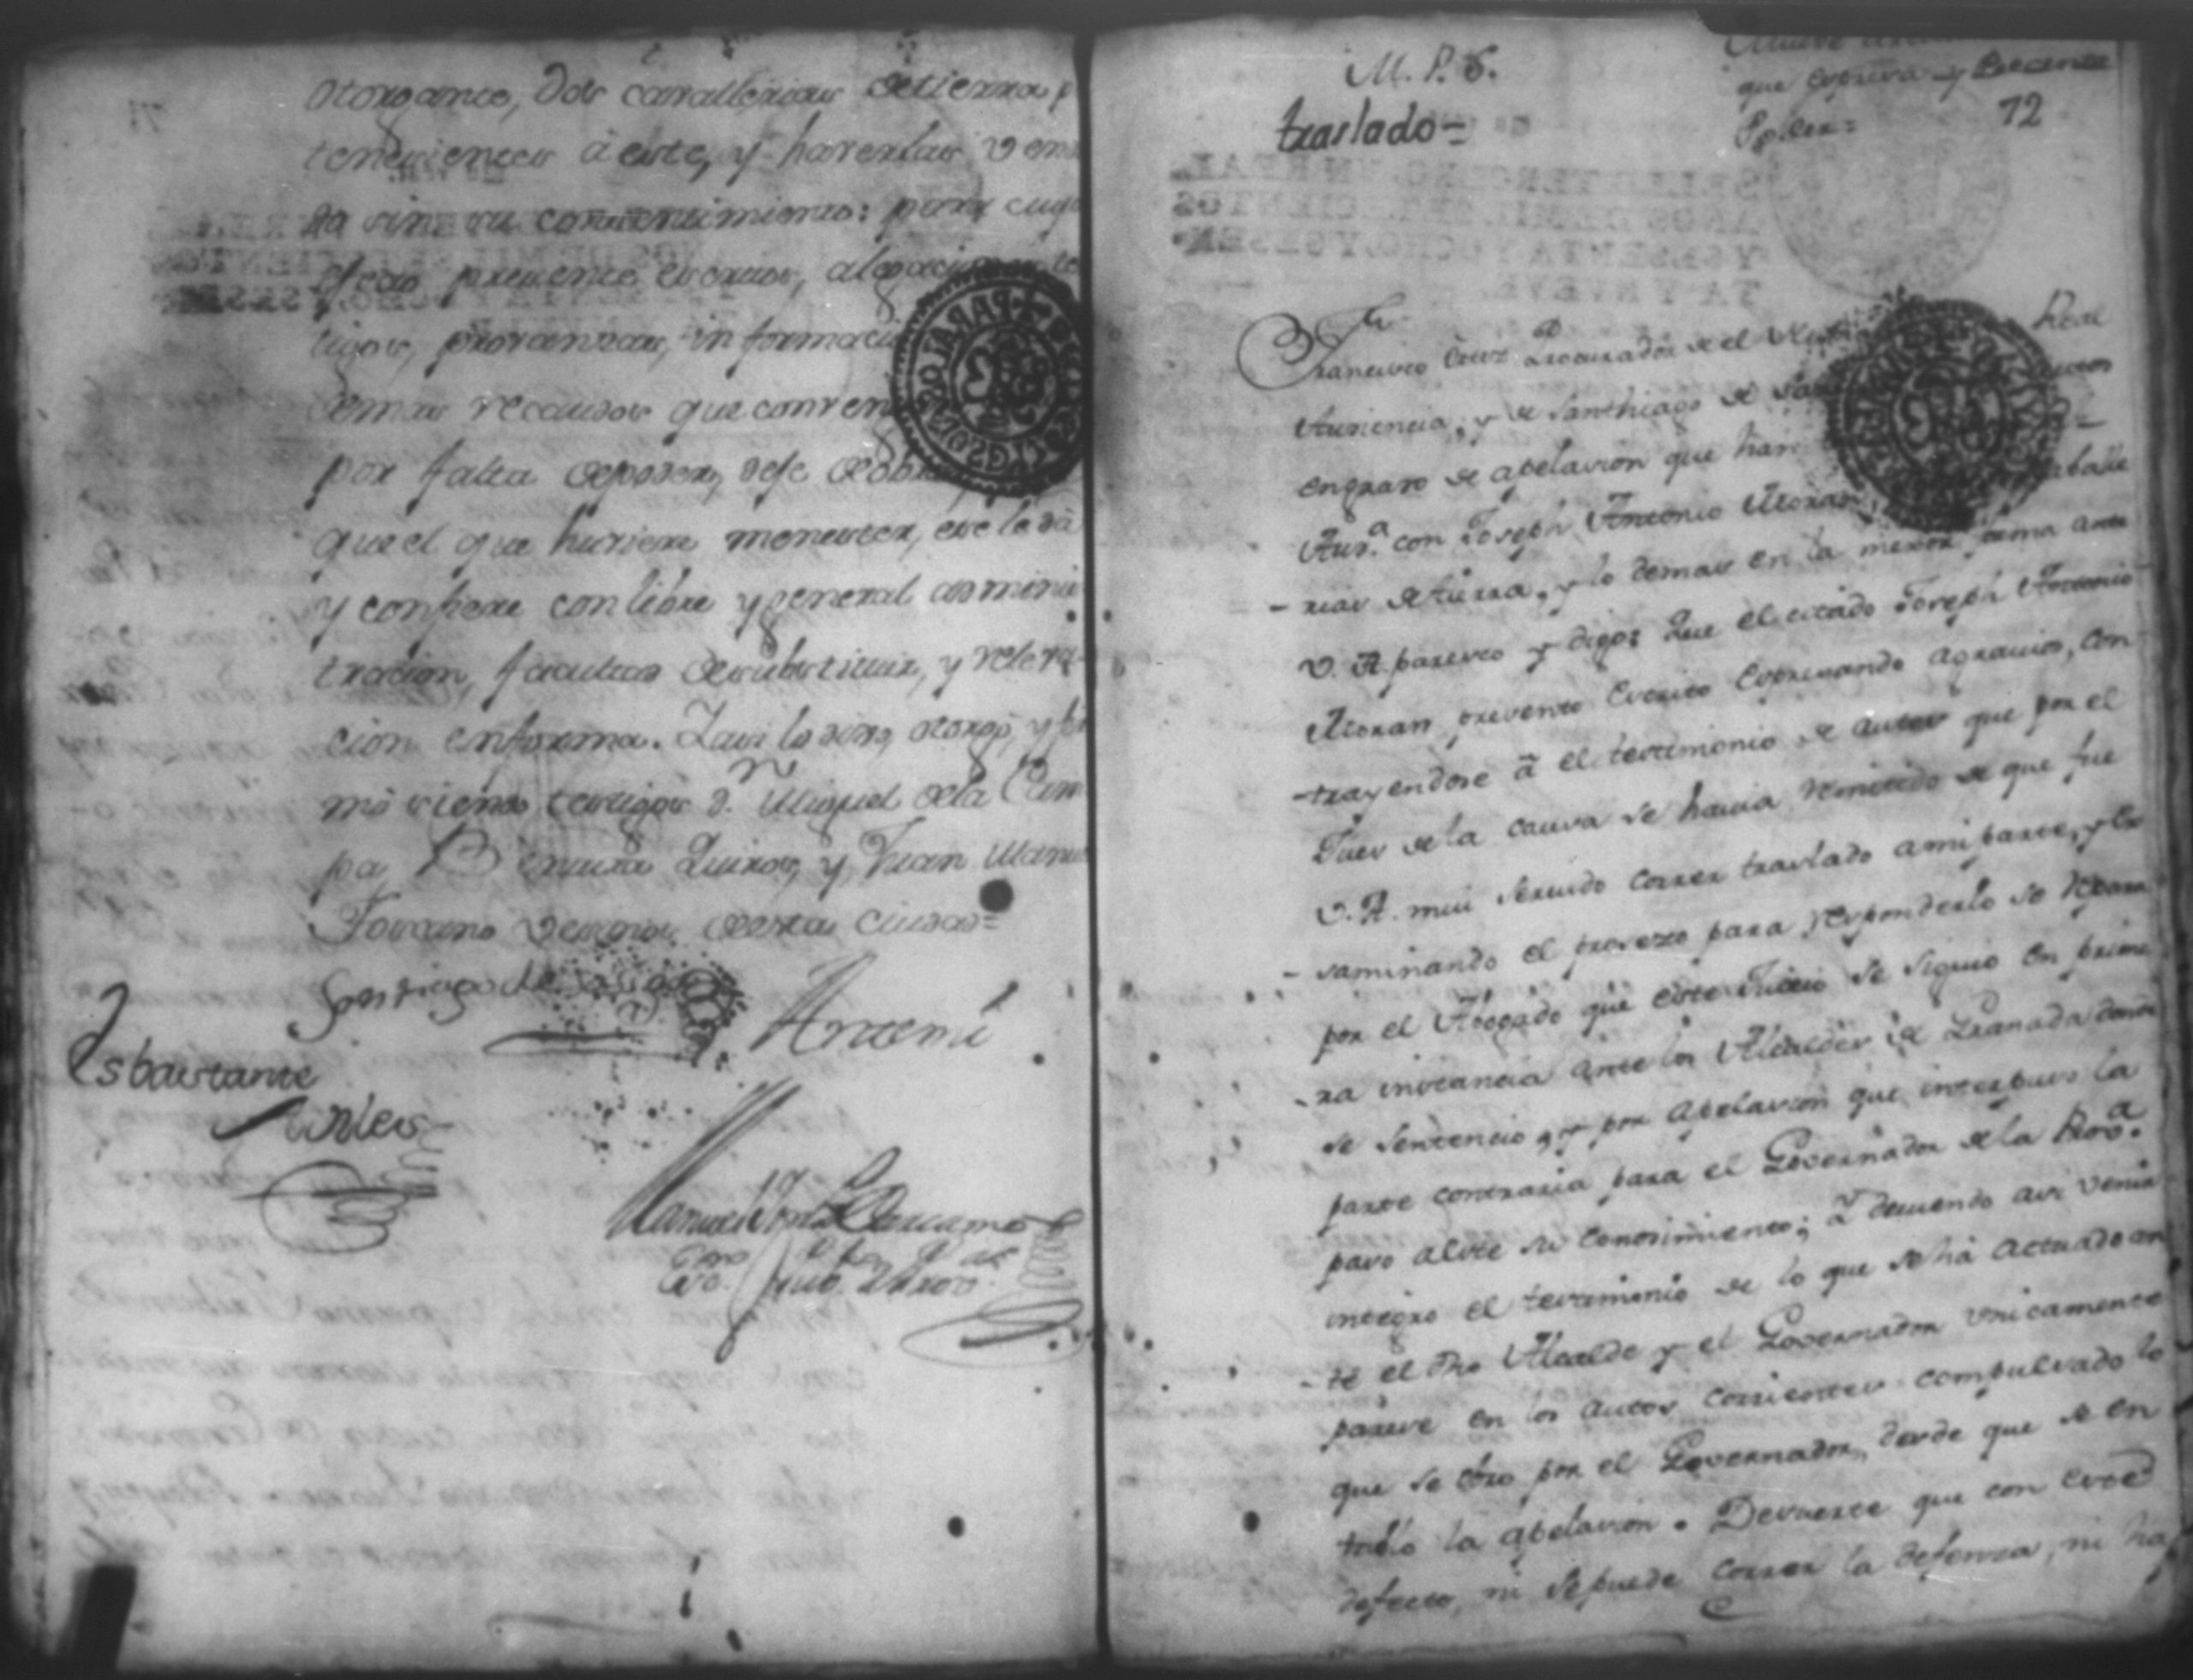 otorgante, dos cavallerias de tierra p
tenecientes à este, y haverlas vend
da sin su consentimiento: para cuyo
efecto presente escritos, alegaciones, te
tigos, provanzas, informacio
demas recaudos que conven
por falta de poder, dexe de obr
que el que huviere menester, ese le dà
y confiere con libre y general adminis
tracion, facultad de substituir, y releva
cion en forma. I asi lo dixo, otorgò, y fir
mò siendo testigos D.n Miguel de la Cam
pa, Quiros, y Juan Manuel
vecinos de esta ciudad=
Santiago de
Antemi
Es bastante
Manuel Carcamo
M. P. S.
traslado=
que expresa y
Poder=
72
SELLO TERCERO, VN REAL,
AÑOS DE MIL SETECIENTOS
Y SESENTA Y OCHO, Y SESEN
TA Y NUEVE.
Francisco Cruz Procurador de el Real
Audiencia, y de Santhiago de autos
en grado de apelacion que han
Aud.a con Joseph Antonio Moran caballe
-rias de tierra, y lo demas en la mexor forma ante
V. A. paresco y digo: Que el citado Joseph Antonio
Moran presentó escrito expresando agravios, con
-trayendose à el testimonio de autos que por el
Jues de la causa se havia remitido de que fue
V. A. mui servido correr traslado a mi parte, y ex
-saminando el proceso para responderlo se repara
por el Abogado que este Juicio se siguio en prime
-ra instancia ante los Alcaldes de Granada donde
se sentencio, y por apelacion que interpuso la
parte contraria para el Governador de la Prov.a
paso a este su conosimiento; I deviendo asi venir
integro el testimonio de lo que se hà actuado an
-te el dho Alcalde y el Governador unicamente
parese en los autos corrientes compulsado lo
que se hizo por el Governador, desde que se en
tablò la apelacion. De suerte que con este
defecto, ni se puede correr la defensa, ni ha